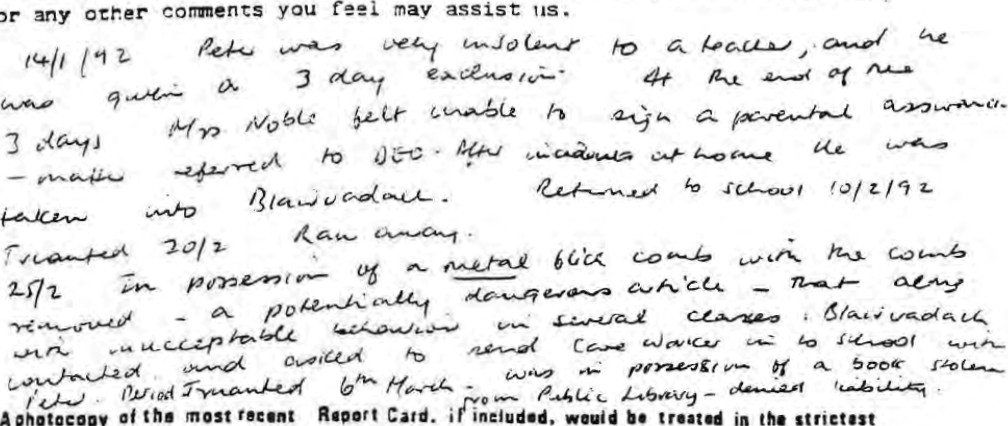 or any other comments you feel may assist us.
14/1/92 Peter was very insolent to a teacher, and he
was given a 3 day exclusion. At the end of the
3 days Mrs Noble felt unable to sign a parental assurance
- matter referred to DEO. After incidents at home He was
taken into Blairvadach. Returned to school 10/2/92
Truanted 20/2 Ran away.
25/2 In possession of a metal flick comb with the comb
removed - a potentially dangerous article - That along
with unacceptable behaviour in several classes. Blairvadach
contacted and asked to send Care Worker in to school with
Peter. Period Truanted 6th March - was in possession of a book stolen
from Public Library - denied liability.
A photocopy of the most recent Report Card, if included, would be treated in the strictest